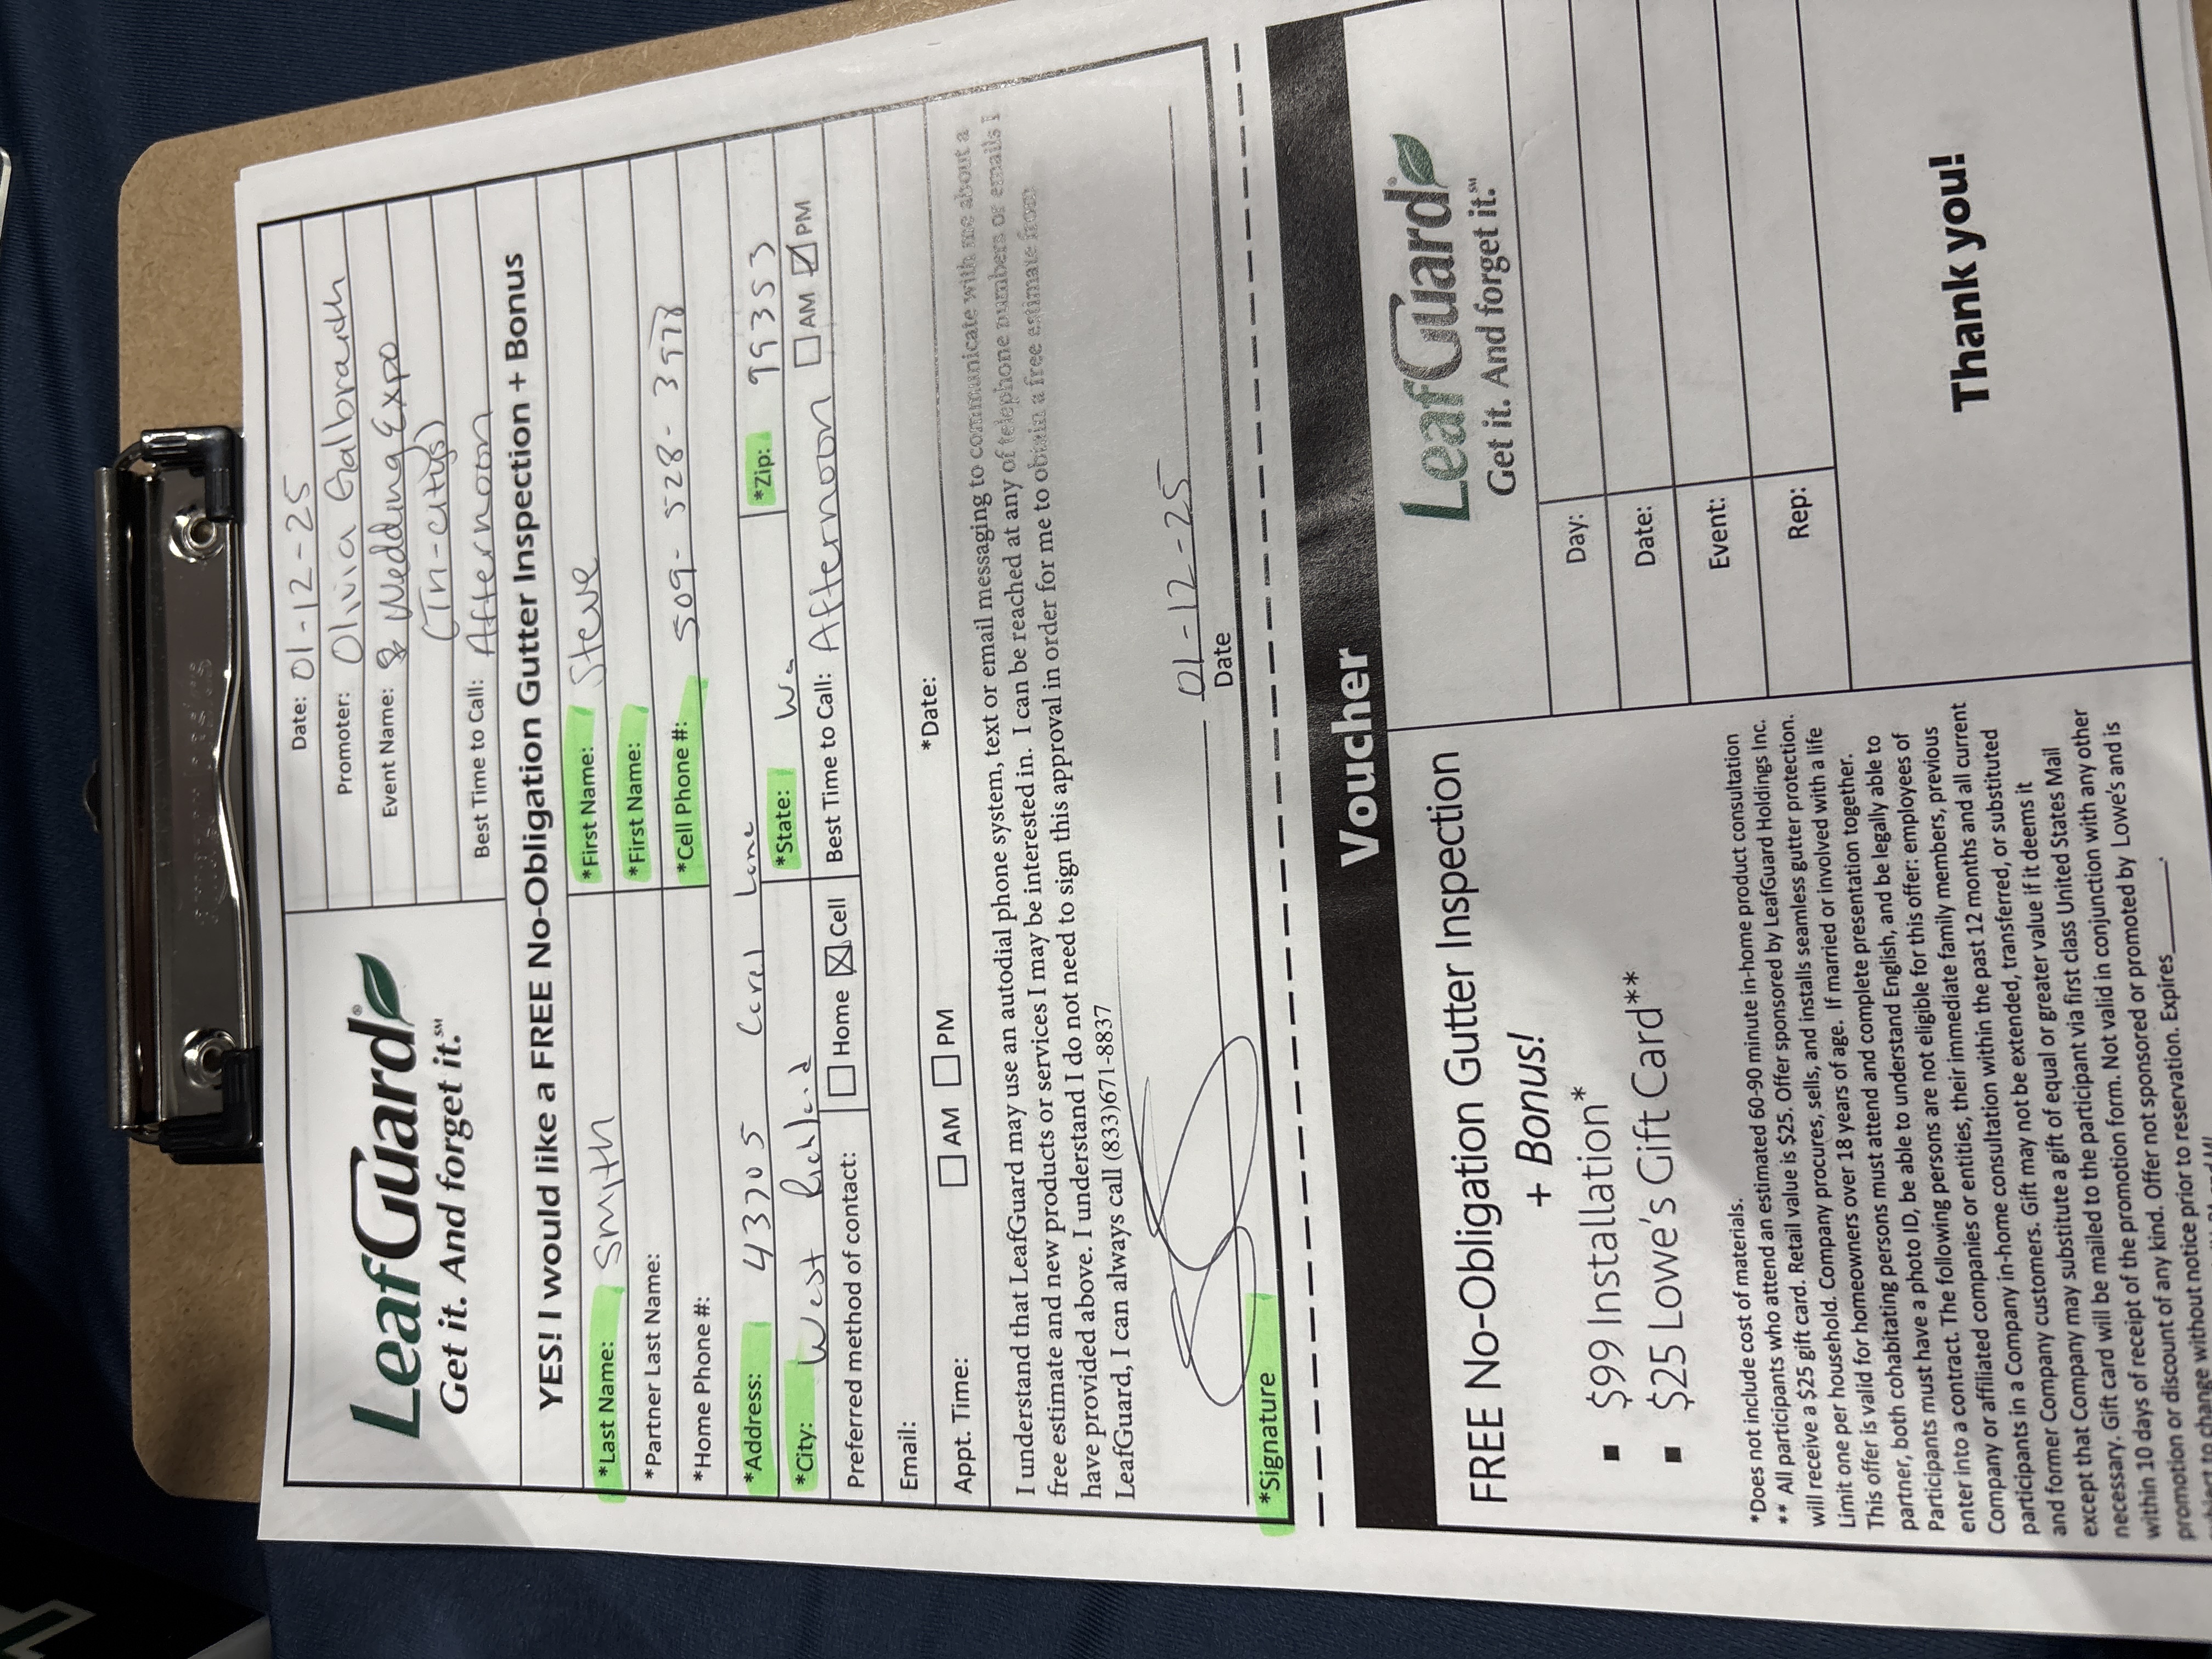 amazon basics
LeafGuard®
Get it. And forget it.℠
Date: 01-12-25
Promoter: Olivia Galbraith
Event Name: Wedding Expo
(Tri-citys)
Best Time to Call: Afternoon
YES! I would like a FREE No-Obligation Gutter Inspection + Bonus
*Last Name: Smith *First Name: Steve
*Partner Last Name: *First Name:
*Home Phone #: *Cell Phone #: 509-528-3978
*Address: 43705 Corel Lane *Zip: 99353
*City: West Richland *State: Wa
Preferred method of contact: Home Cell Best Time to Call: Afternoon AM PM
Email:
Appt. Time: AM PM *Date:
I understand that LeafGuard may use an autodial phone system, text or email messaging to communicate with me about a
free estimate and new products or services I may be interested in. I can be reached at any of telephone numbers or emails I
have provided above. I understand I do not need to sign this approval in order for me to obtain a free estimate from
LeafGuard, I can always call (833)671-8837
01-12-25
*Signature Date
Voucher
FREE No-Obligation Gutter Inspection
+ Bonus!
▪ $99 Installation*
▪ $25 Lowe's Gift Card**
*Does not include cost of materials.
** All participants who attend an estimated 60-90 minute in-home product consultation
will receive a $25 gift card. Retail value is $25. Offer sponsored by LeafGuard Holdings Inc.
Limit one per household. Company procures, sells, and installs seamless gutter protection.
This offer is valid for homeowners over 18 years of age. If married or involved with a life
partner, both cohabitating persons must attend and complete presentation together.
Participants must have a photo ID, be able to understand English, and be legally able to
enter into a contract. The following persons are not eligible for this offer: employees of
Company or affiliated companies or entities, their immediate family members, previous
participants in a Company in-home consultation within the past 12 months and all current
and former Company customers. Gift may not be extended, transferred, or substituted
except that Company may substitute a gift of equal or greater value if it deems it
necessary. Gift card will be mailed to the participant via first class United States Mail
within 10 days of receipt of the promotion form. Not valid in conjunction with any other
promotion or discount of any kind. Offer not sponsored or promoted by Lowe's and is
subject to change without notice prior to reservation. Expires________.
LeafGuard®
Get it. And forget it.℠
Day:
Date:
Event:
Rep:
Thank you!